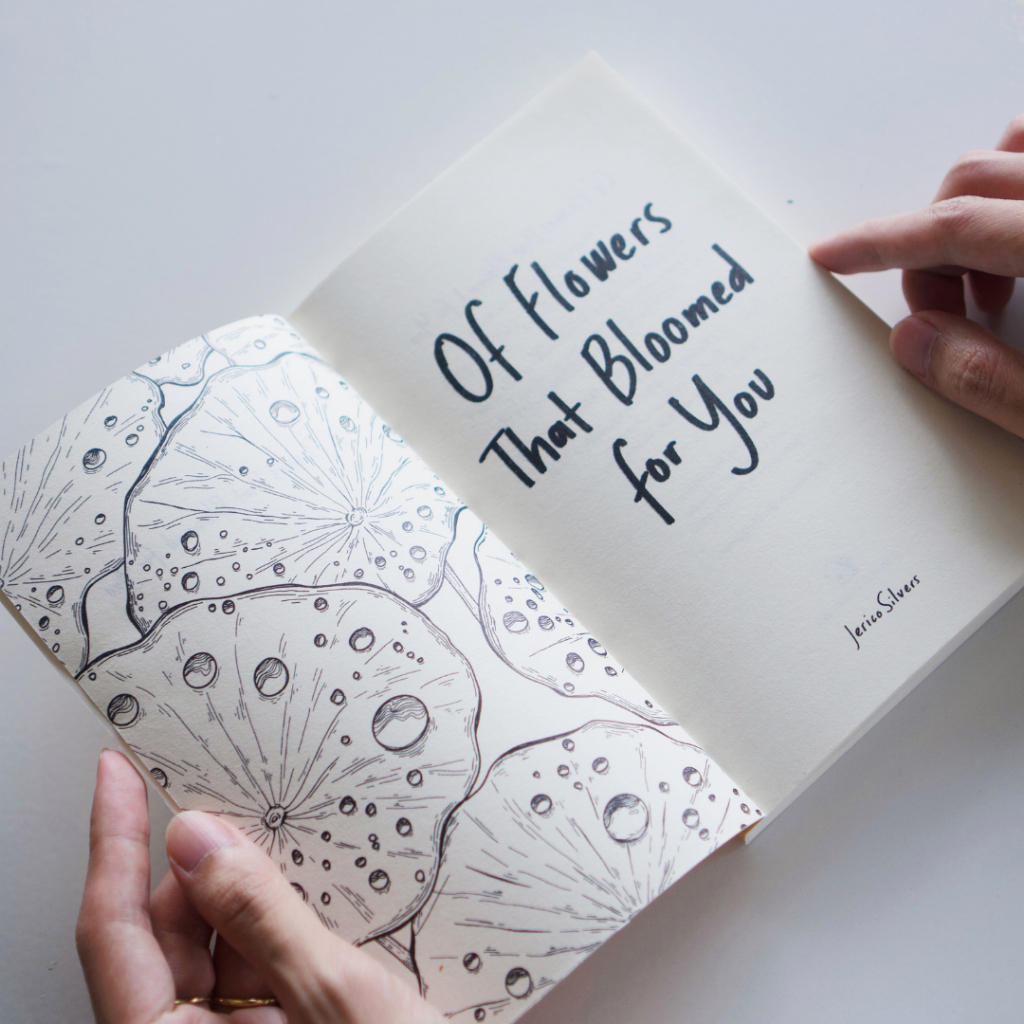 Of Flowers
That Bloomed
for You
Jerico Silvers